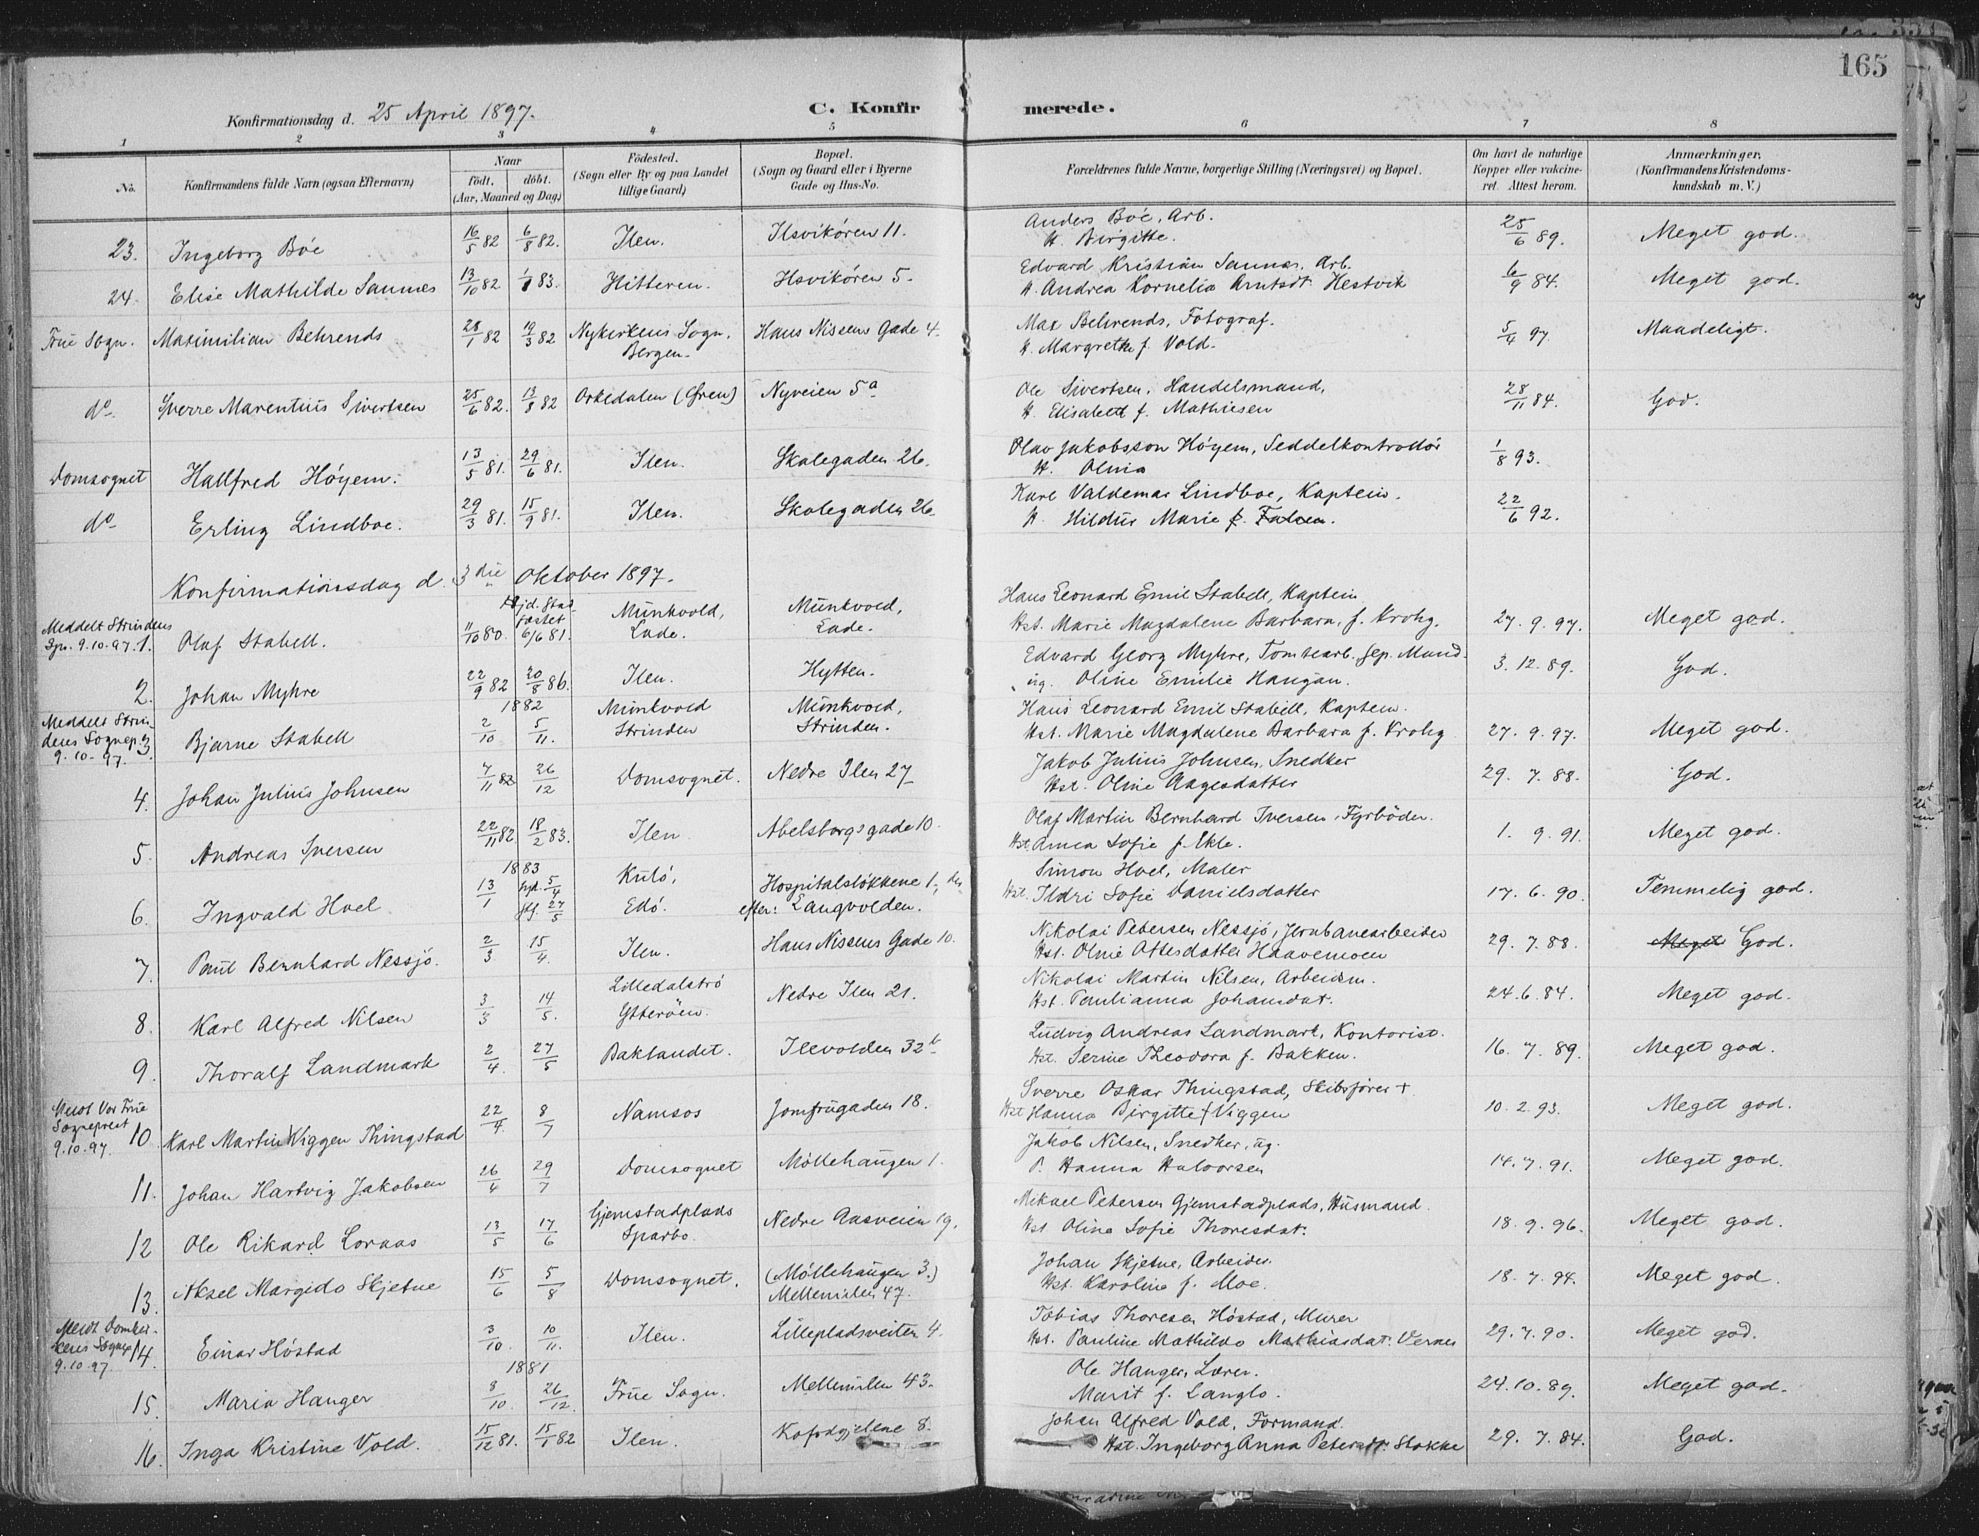 165
Konfirmationsdag d. 25 April 1897.
C. Konfirmerede.
1 2 3 4 5 6 7 8
No.
Konfirmandens fulde Navn (ogsaa Efternavn)
Naar
födt. döbt.
(Aar, Maaned og Dag)
Födested.
(Sogn eller By og paa Landet
tillige Gaard)
Bopæl.
(Sogn og Gaard eller i Byerne
Gade og Hus-No.
Forældrenes fulde Navne, borgerlige Stilling (Næringsvei) og Bopæl.
Om havt de naturlige
Kopper eller vakcine-
ret. Attest herom.
Anmærkninger.
(Konfirmandens Kristendoms-
kundskab m. V.)
23. Ingeborg Böe 16/5 82 6/8 82. Ilen. Ilsvikören 11. Anders Böe, Arb. H. Birgitte. 25/6 89. Meget god.
24. Elise Mathilde Sannes 13/10 82 1/1 83. Hitteren. Ilsvikören 5. Edvard Kristian Sannes, Arb. H. Andrea Kornelia Arntsdt. Hestvik 6/9 84. Meget god.
Frue Sogn. Maximilian Behrends 28/1 82 19/3 82 Nykirkens Sogn, Bergen. Hans Nissens Gade 4. Max Behrends, Fotograf. H. Margrethe f. Vold. 5/4 97. Maadeligt.
do Sverre Marentius Sivertsen 25/6 82. 13/8 82 Orkedalen (Øren) Nyveien 5a Ole Sivertsen, Handelsmand, H. Elisabeth f. Mathiesen 28/11 84. God.
Domsognet Hallfred Höyem. 13/5 81. 29/6 81. Ilen. Skolegaden 26. Olav Jakobsson Höyem, Seddelkontrollör H. Olina 1/8 93.
do Erling Lindboe. 29/3 81. 15/9 81. Ilen. Skolegaden 26. Karl Valdemar Lindboe, Kaptein. H. Hildur Marie f. Falsen. 22/6 92.
Konfirmationsdag d. 3die Oktober 1897.
Meddelt Strindens Spr. 9.10.97. 1. Olaf Stabell. 11/10 80. Hjd. Stadfæstet 6/6 81. Munkvold, Lade. Munkvold, Lade. Hans Leonard Emil Stabell, Kaptein Hst. Marie Magdalene Barbara, f. Krohg. 27. 9. 97. Meget god.
2. Johan Myhre 22/9 82 20/8 86. Ilen. Hytten. Edvard Georg Myhre, Tomtearb. sep. Mand. ug. Oline Emilie Haugan. 3. 12. 89. God.
Meddelt Strindens Sognep. 9.10.97. 3 Bjarne Stabell 1882 2/10 5/11. Munkvold Strinden Munkvold, Strinden. Hans Leonard Emil Stabell, Kaptein. Hst. Marie Magdalene Barbara f. Krohg 27. 9. 97. Meget god.
4. Johan Julius Johnsen 7/11 82 26/12 Domsognet. Nedre Ilen 27 Jakob Julius Johnsen, Snedker Hst. Oline Aagesdatter 29. 7. 88. God.
5. Andreas Iversen 22/11 82 18/2 83. Ilen. Abelsborgsgade 10. Olaf Martin Bernhard Iversen, Fyrböder. Hst. Anna Sofie f. Ekle. 1. 9. 91. Meget god.
6. Ingvald Hoel 1883 13/1 5/4 27/5 Kulö, Edö. Hospitalslökkene 1, efter: Langvolden. Simon Hoel, Maler Hst. Ildri Sofie Danielsdatter 17. 6. 90. Temmelig god.
7. Paul Bernhard Nessjö. 2/3 15/4. Ilen. Hans Nissens Gade 10. Nikolai Petersen Nessjö, Jernbanearbeider Hst. Oline Ottesdatter Haavemoen 29. 7. 88. Meget God.
8. Karl Alfred Nilsen 3/3 14/5. Lilledalströ Ytteröen. Nedre Ilen 21. Nikolai Martin Nilsen, Arbeidsm. Hst. Paulianna Johansdat. 24. 6. 84. Meget god.
9. Thoralf Landmark 2/4. 27/5 Baklandet. Ilevolden 32b Ludvig Andreas Landmark, Kontorist. Hst. Serine Theodora f. Bakken. 16. 7. 89. Meget god.
Meddt Vor Frue Sogneprest 9.10.97. 10. Karl Martin Viggen Thingstad 22/4. 8/7 Namsos Jomfrugaden 18. Sverre Oskar Thingstad, Skibsförer + Hst Hanna Birgitte f Viggen 10. 2. 93. Meget god.
11. Johan Hartvig Jakobsen 26/4 29/7 Domsognet Möllehaugen 1. Jakob Nilsen, Snedker, ug. P. Hanna Halvorsen 14. 7. 91. Meget god.
12 Ole Rikard Loraas 13/5 17/6 Gjemstadplads Sparbo. Nedre Aasveien 19. Mikael Petersen Gjemstadplads, Husmand. Hst. Olina Sofie Thoresdat. 18. 9. 96. Meget god.
13. Aksel Margido Skjetne 15/6 5/8 Domsognet. (Möllehaugen 3.) Mellemilen 47. Johan Skjetne, Arbeider. Hst. Karoline f. Moe. 18. 7. 94. Meget god.
Meddt Domkirkens Sognep 9.10.97. 14. Einar Höstad 3/10. 10/11. Ilen. Lillepladsveiten 4. Tobias Thoresen Höstad, Murer Hst. Pauline Mathilde Mathiasdat. Vernes 29. 7. 90. Meget god.
15. Maria Hanger 1881 8/10 26/12. Frue Sogn. Mellemilen 43. Ole Hanger, Lærer. Marit f. Langlo. 24. 10. 89. Meget god.
16. Inga Kristine Vold. 15/12 81. 15/1 82 Ilen. Kofodgjelene 8. Johan Alfred Vold, Formand. Hst. Ingeborg Anna Petersdt Stokke 29. 7. 84. God.